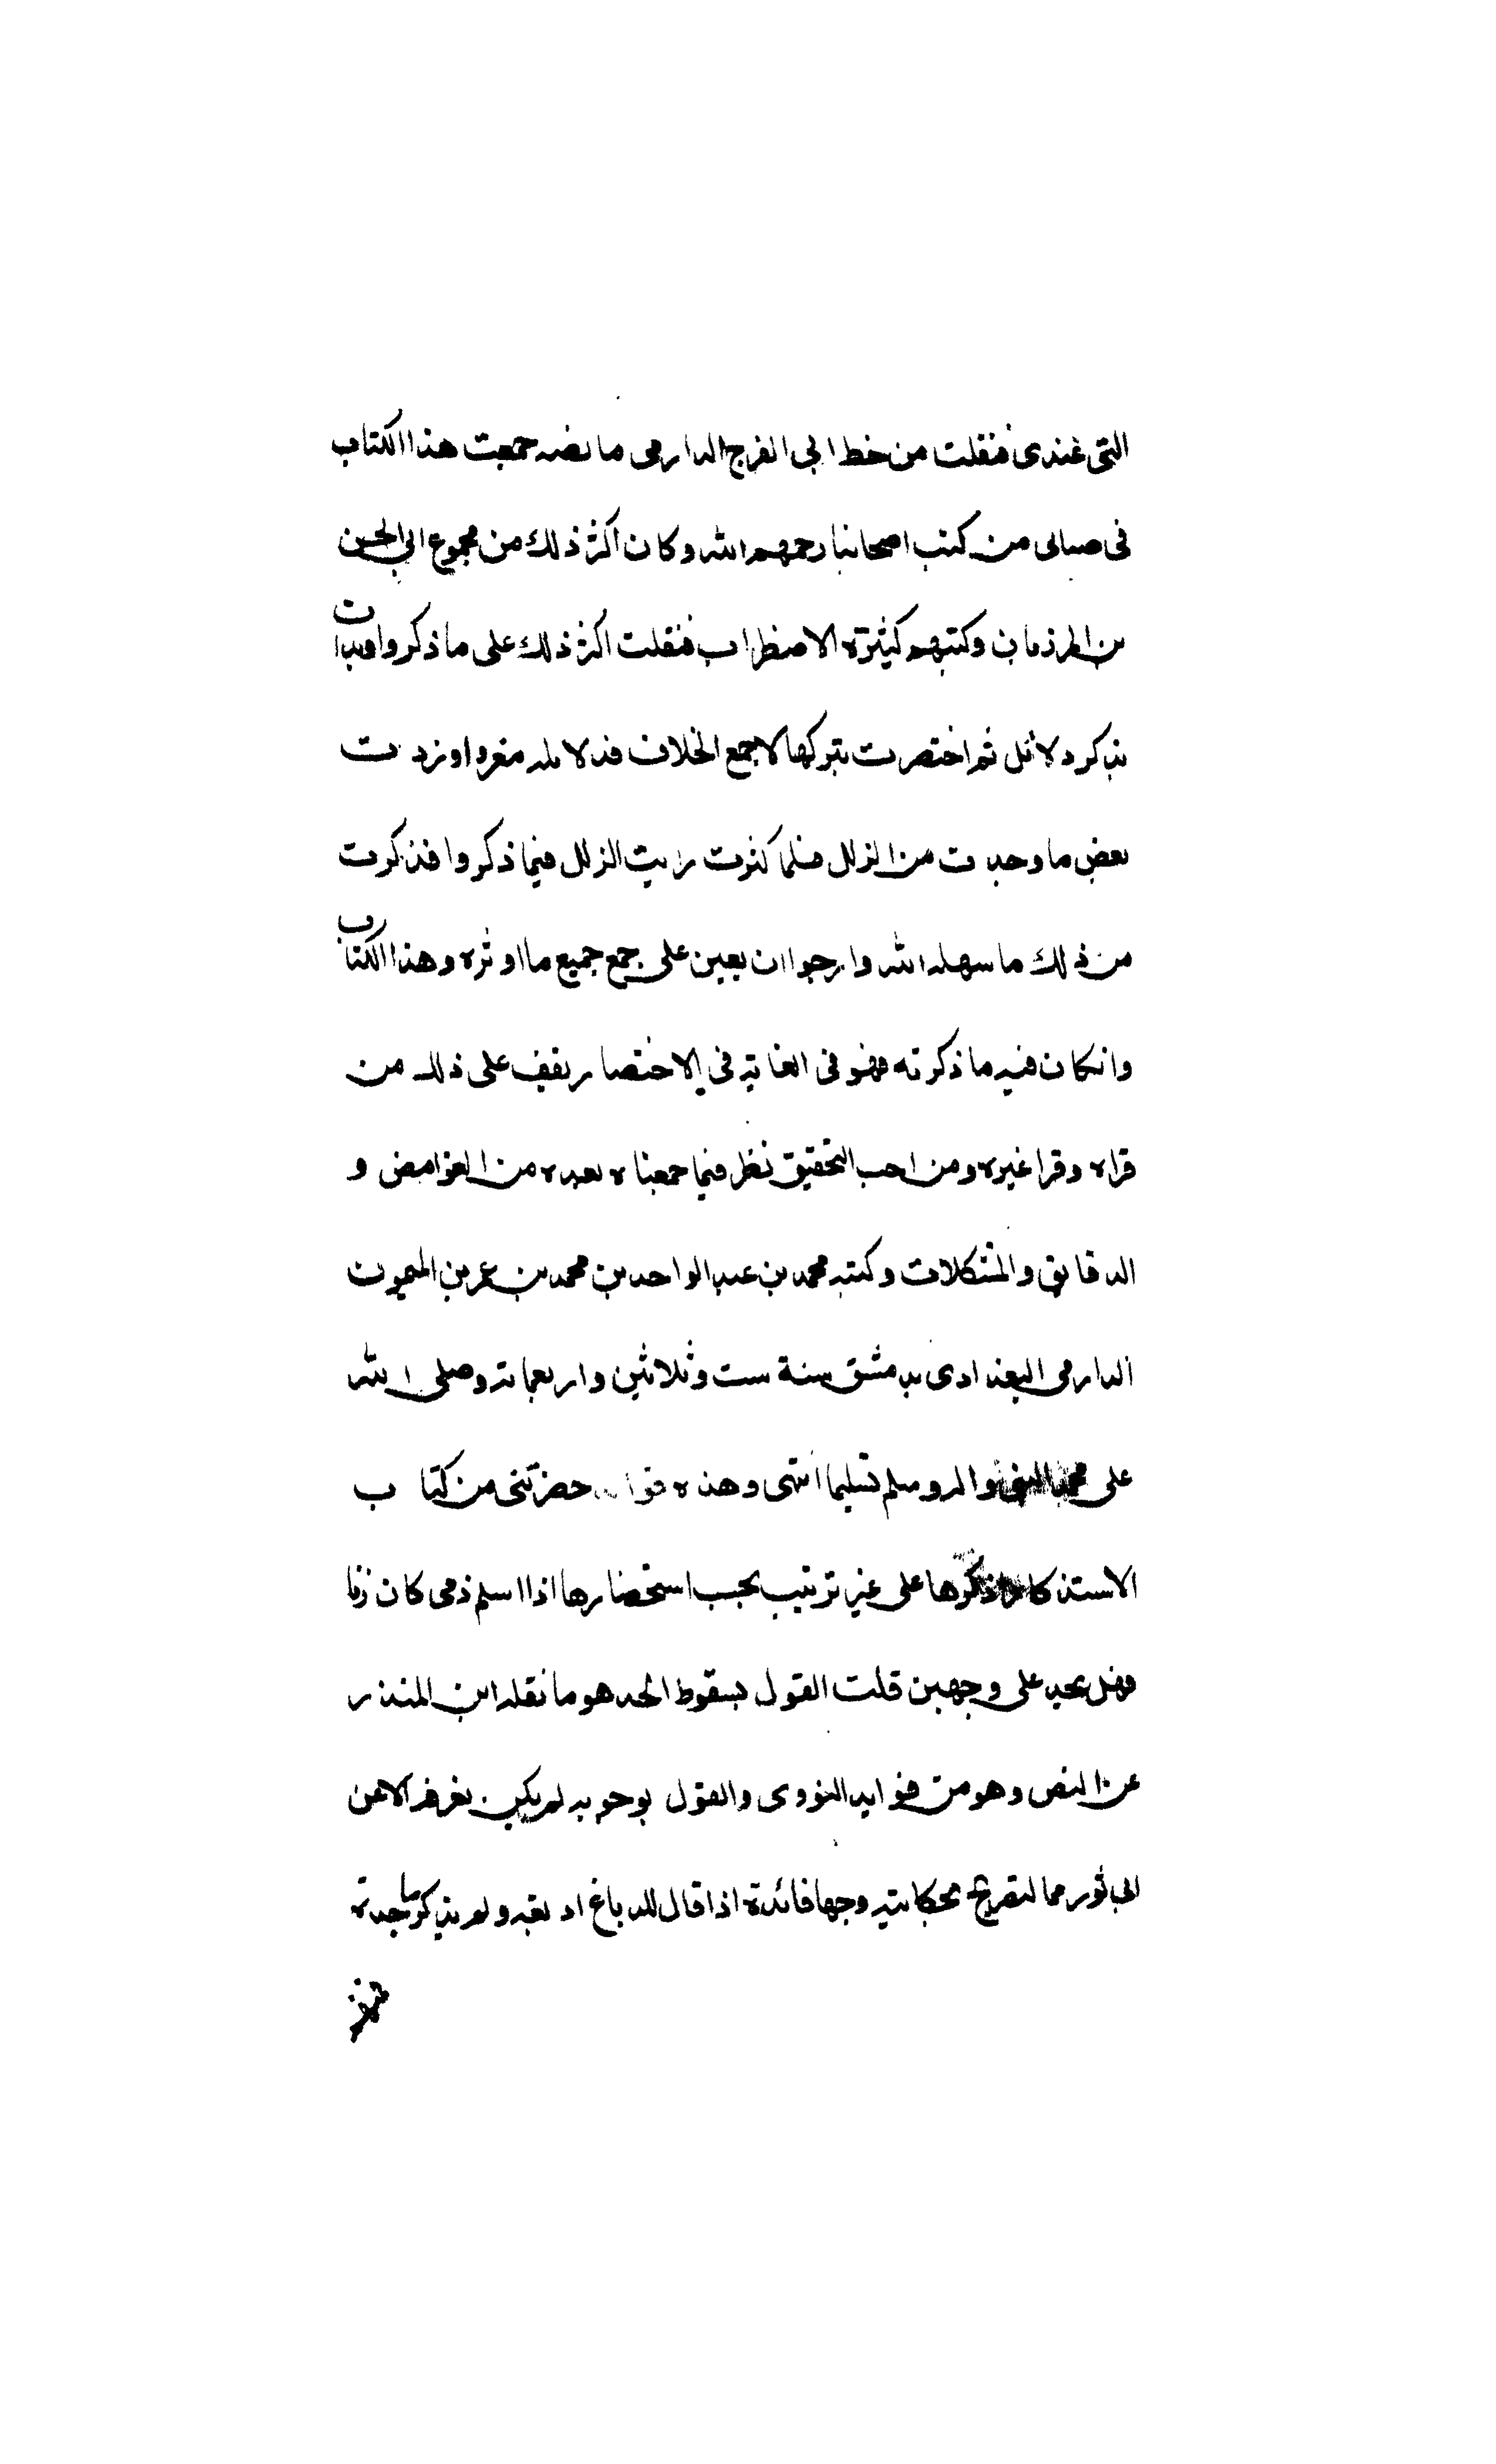 التى عندى فنقلت من خط ابى الفرج الدارمى ما نصه جمعت هذا الكتاب
فى صباى من كتب اصحابنا رحمهم الله وكان اكثر ذلك من مجموع ابى الحسن
بن المرزبان وكتبهم كثيرة الاضطراب فنقلت اكثر ذلك على ما ذكروا وبدات
بذكر دلائل ثم اختصرت بتركها لاجمع الخلاف فدلايله مفردا وزدت
بعض ما وجدت من الزلل فلما كثرت رايت الزلل فيما ذكروا فذكرت
من ذلك ما سهله الله وارجوا ان يعين على جمع جميع ما اوثره وهذا الكتاب
وانكان فيه ما ذكرته فهو فى الغاية فى الاختصار يقف على ذلك من
قراه وقرا غيره ومن احب التحقيق نظر فيما جمعناه بعده من الغوامض و
الدقايق والمشكلات وكتبه محمد بن عبد الواحد بن محمد بن عمر بن الميمون
الدارمى البغدادى بدمشق سنة ست وثلاثين واربعماية وصلى الله
على محمد النبى واله وسلم تسليما انتهى وهذه حضرتنى من كتاب
الاستذكار اذكرها على غير ترتيب بحسب استحضارها اذا اسلم ذمى كان زنا
فهل يحد على وجهين قلت القول بسقوط الحد هو ما نقله ابن المنذر
عن النص وهو من فوايد النووى والقول بوجوبه لم يكن يعرف الا عن
ابى ثور مما لتفريج بحكايته وجها فائدة اذا قال للدباغ ادبغه ولم يذكر ما جدته